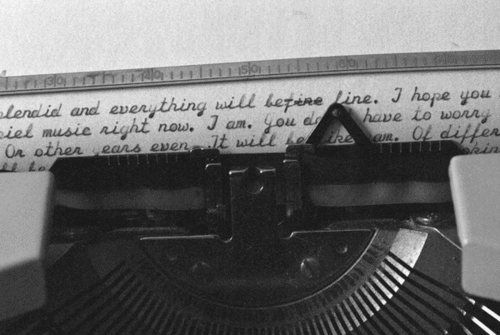 30 40 50 60 70
plendid and everything will befine fine. I hope you
piel music right now. I am. You do have to worry
Or other ears even. It will be like am. Of differ
ll be